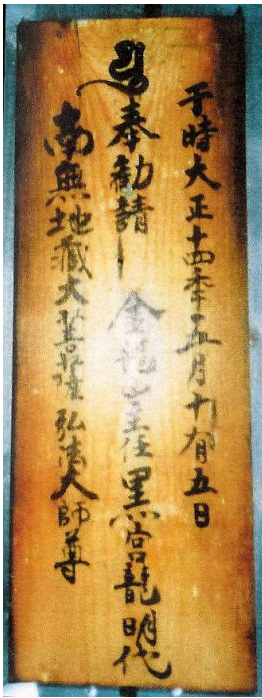 于時大正十四季五月十有五日
奉勧請 金龍山主任黒宮龍明代
南無地蔵大菩薩弘法大師尊